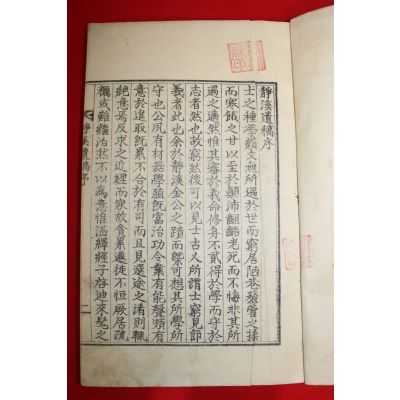 靜溪遺稿序
士之種學績文無所遇於世而窮居陋巷蔾藿之糁
而寒餓之甘以至於顛沛齟齬老死而不悔非其所
遇之適然惟其審於義命修身不貳得於學而守於
志者然也故窮然後可以見士古人所謂士窮見節
義者此也余於靜溪金公之蹟而槩可想其所學所
守也公夙有材器學殖旣富治功令業有能聲頗有
意於進取旣累不合於有司而且見選途之淆則輒
絶意焉反求之近裡而家故貧累遷徙不恒厥居疏
糲或難繼泊然不以為意惟溫繹經子啓迪來髦之
靜溪遺稿序
一